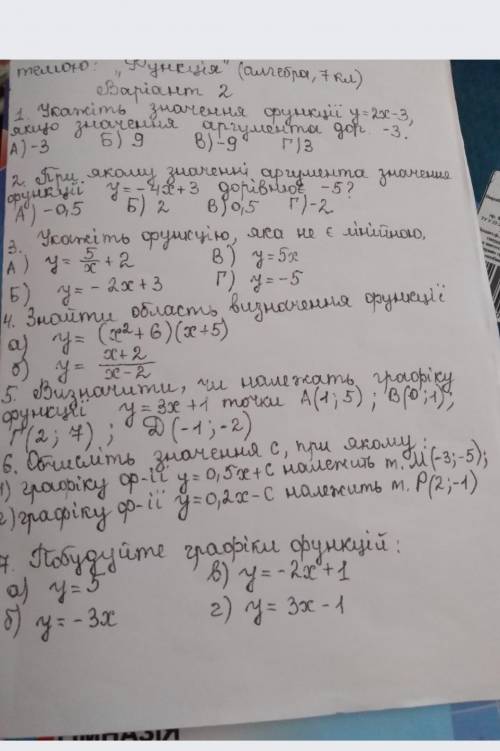 темою: „Функція" (алгебра, 7 кл)
Варіант 2
1. Укажіть значення функції y=2x-3,
якщо значення аргумента дор. -3.
А) -3 Б) 9 В) -9 Г) 3
2. При якому значенні аргумента значення
функції y=-4x+3 дорівнює -5?
А) -0,5 Б) 2 В) 0,5 Г) -2
3. Укажіть функцію, яка не є лінійною.
А) y=5/x+2 В) y=5x
Б) y=-2x+3 Г) y=-5
4. Знайти область визначення функції
а) y=(x²+6)(x+5)
б) y=x+2/x-2
5. Визначити, чи належать графіку
функції y=3x+1 точки А(1;5); В(0;1);
Г(2;7); Д(-1;-2)
6. Обчисліть значення с, при якому:
1) графіку ф-ії y=0,5x+c належить т. М(-3;-5);
2) графіку ф-ії y=0,2x-c належить т. Р(2;-1)
7. Побудуйте графіки функцій:
а) y=5 в) y=-2x+1
б) y=-3x г) y=3x-1
ГІМНАЗІЯ